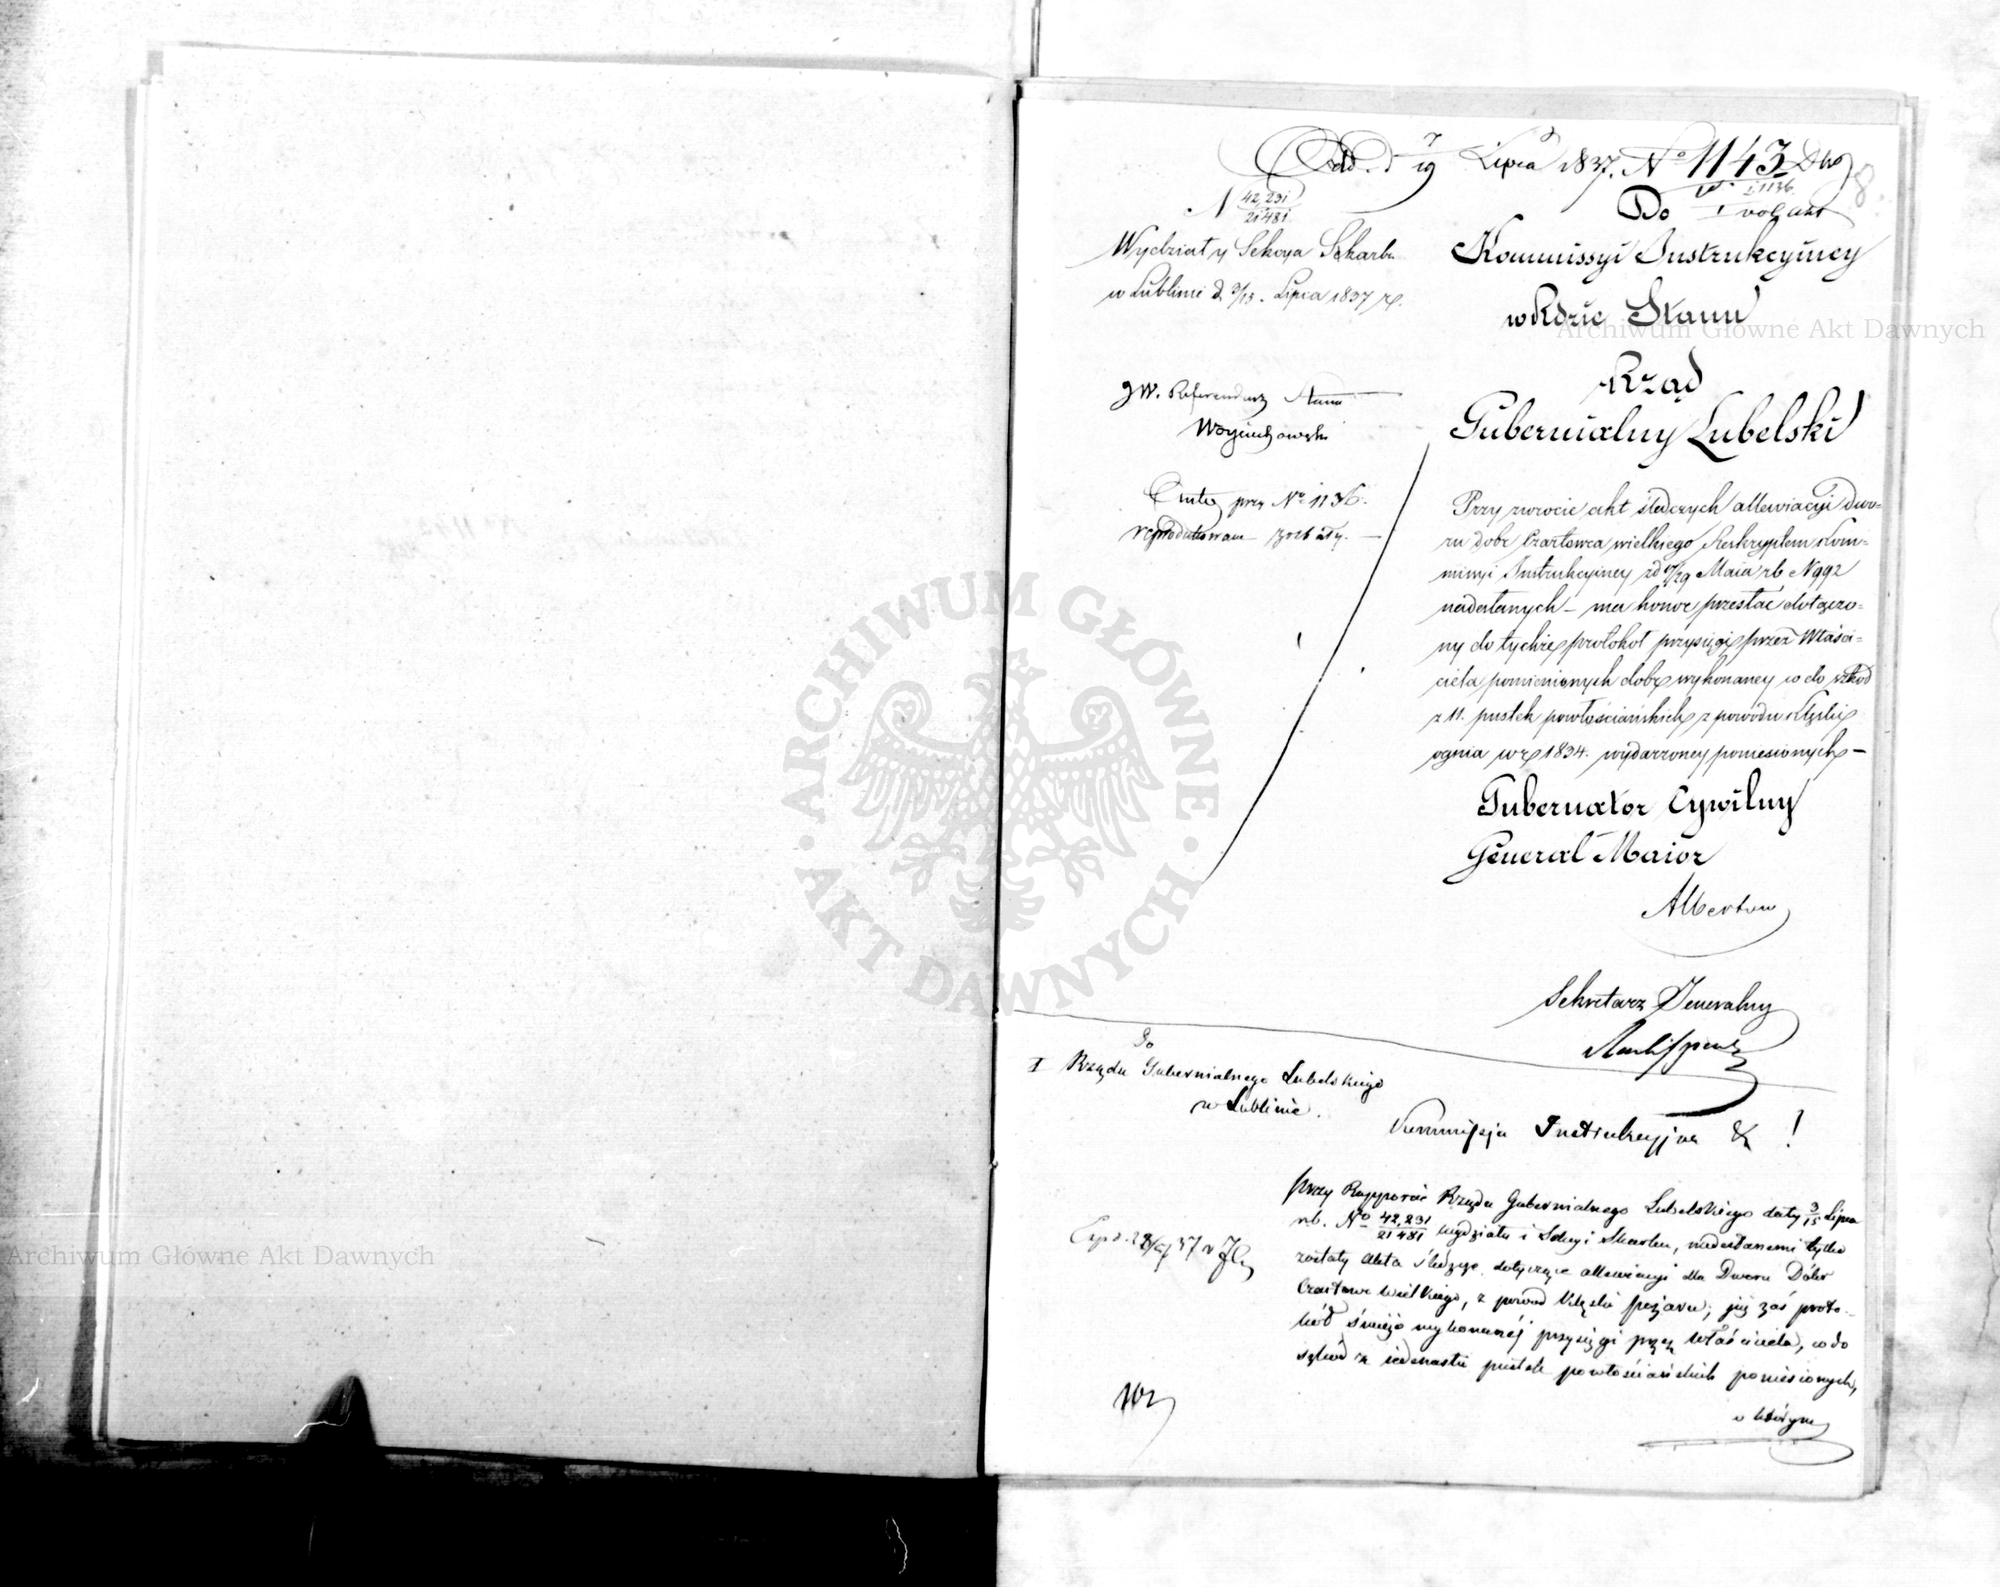 Odd. d 7/19 Lipca 1837. No 1143
8.
N 42,231/21481
Do
Wydział y Sekcya Skarbu
w Lublinie d 3/15. Lipca 1837 r.
Kommissyi Instrukcyiney
w Rdzie Stanu
Rząd
Gubernialny Lubelski
JW. Referendarz Stanu
Woyciechowski
przy No 1136.
Przy zwrocie akt śledczych allewiacyi dwo-
ru dobr Czartowca wielkiego Reskryptem Kom-
missyi Instrukcyiney z d 17/29 Maia rb N 992
nadesłanych – ma honor przesłać dołączo-
ny do tychże protokół przysięgi przez Właści-
ciela pomienionych dobr wykonaney co do szkod
z 11. pustek powłościańskich z powodu klęski
ognia w r 1834. wydarzoney poniesionych –
Gubernator Cywilny
Generał Maior
Albertow
Sekretarz Jeneralny
Do
I Rządu Gubernialnego Lubelskiego
w Lublinie.
Kommissja Instrukcyjna & !
przy Rapporcie Rządu Gubernialnego Lubelskiego daty 3/15 Lipca
rb. No 42,231/21481 wydziału i Sekcyi Skarbu, nadesłanemi tylko
zostały Akta śledcze dotyczące allewiacyi dla Dworu Dóbr
Czartowc Wielkiego, z powod klęski pożaru; już zaś proto-
kół świeżo wykonanéj przysięgi przez właściciela, co do
szkód z iedenastu pustek powłościańskich poniesionych,
o którym
Archiwum Główne Akt Dawnych
Archiwum Główne Akt Dawnych
ARCHIWUM GŁÓWNE · AKT DAWNYCH ·